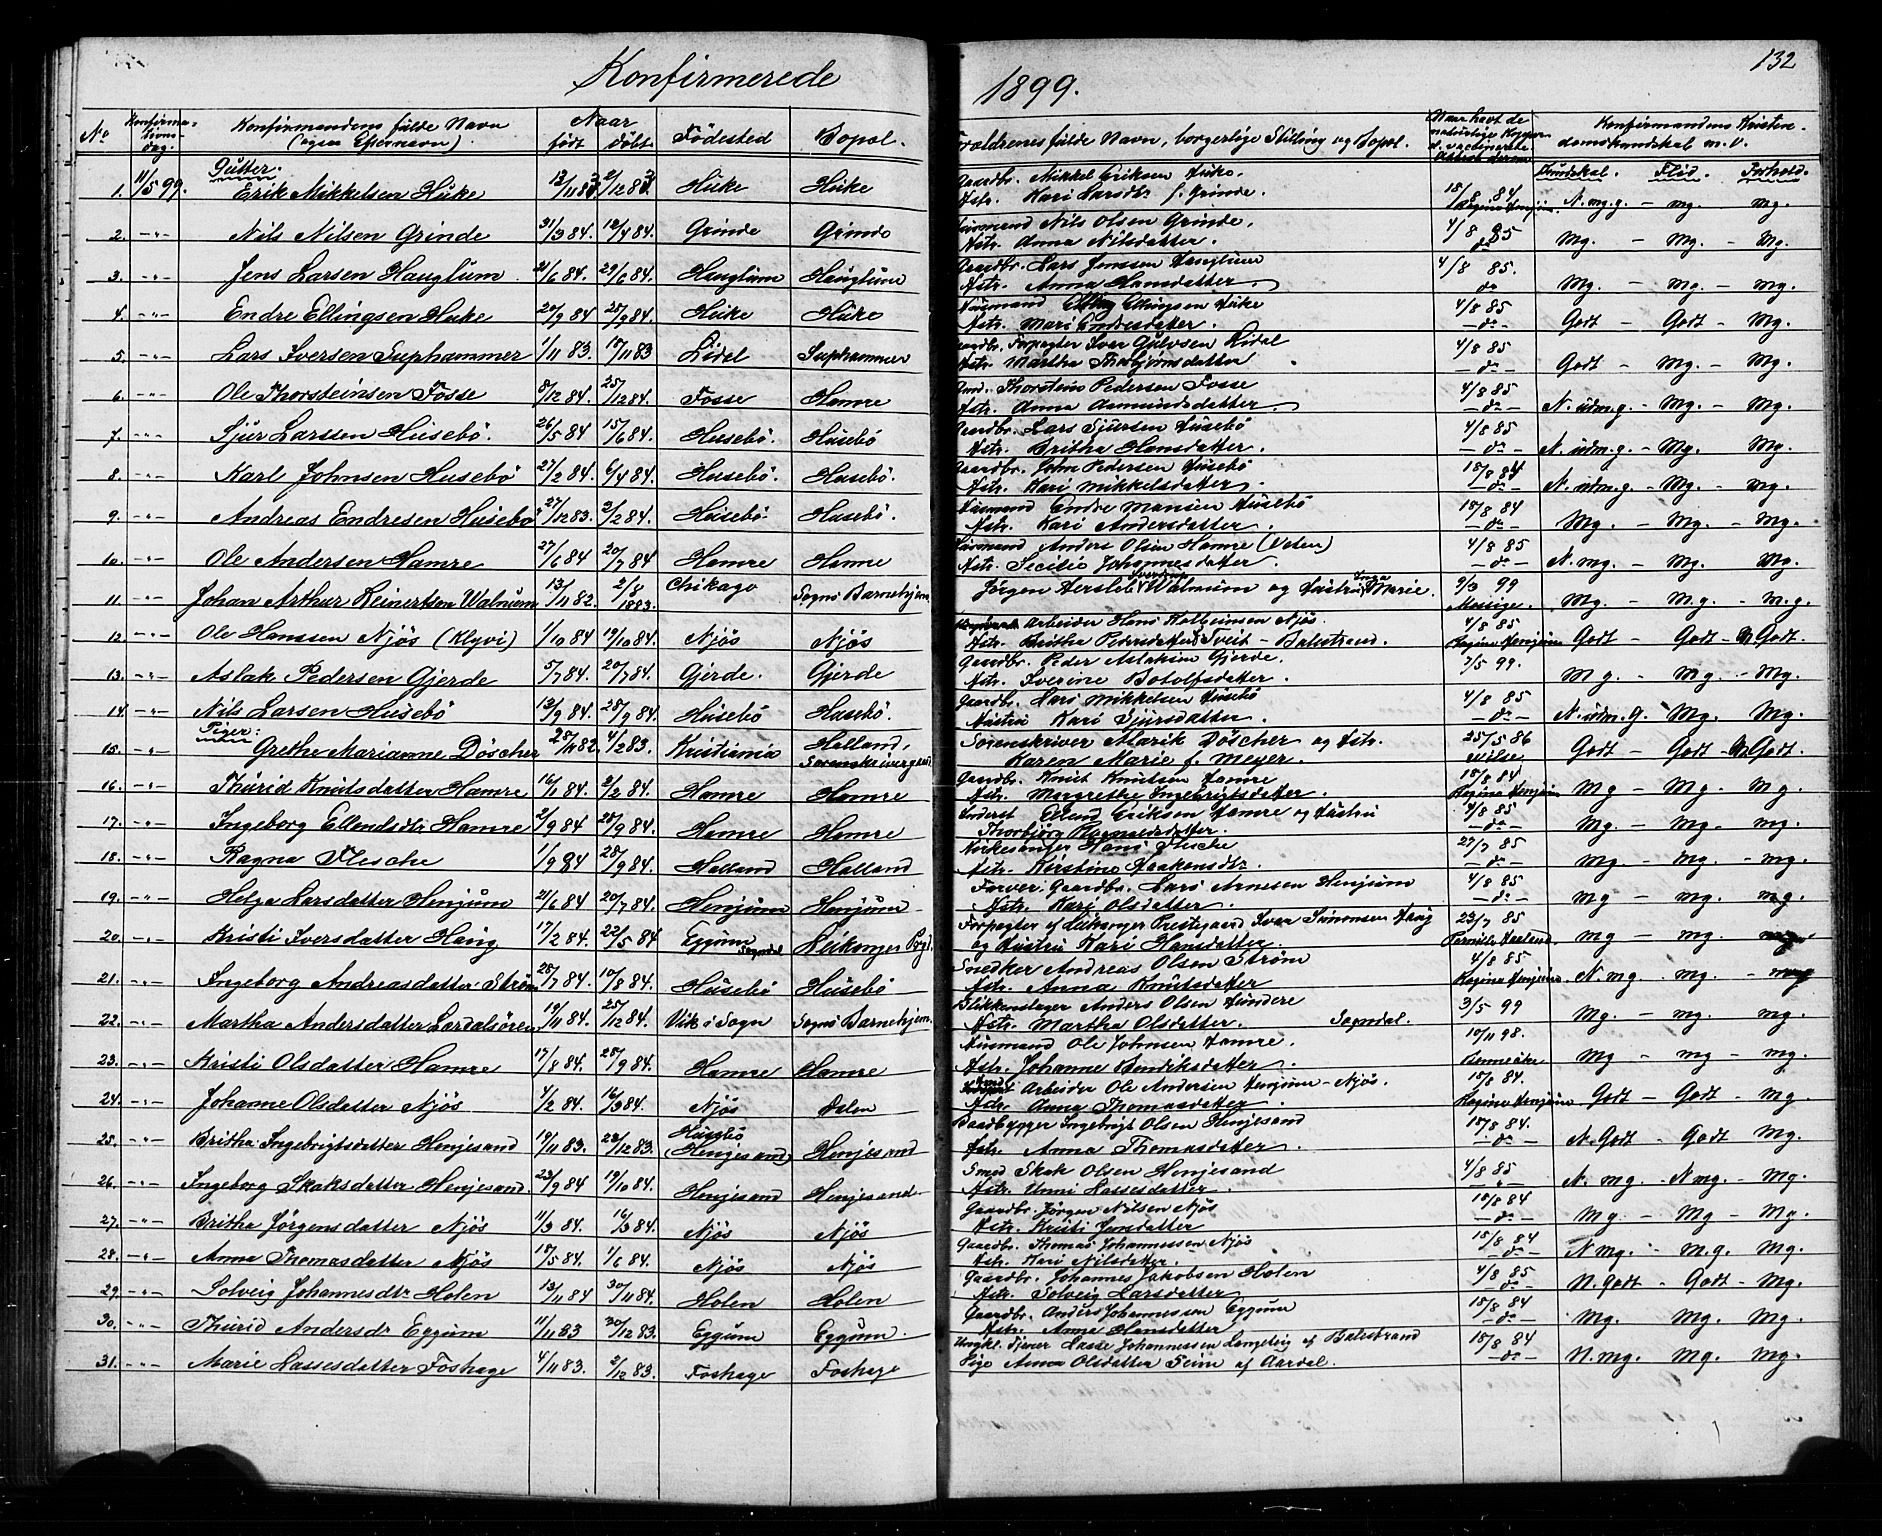 132
Konfirmerede 1899.
No Konfirmations-dag. Konfirmandens fulde Navn (ogsaa Efternavn). Naar født døbt Fødested Bopæl. Forældrenes fulde Navn, borgerlige Stilling og Bopæl. Naar havt de naturlige Kopper el. vaccinerede Konfirmandens Kristendomskundskab m. v.
Kundskab. Flid. Forhold.
Gutter.
1. 11/5 99. Erik Mikkelsen Huke Huke Huke Gaardbr. Mikkel Eriksen Huke. 18/8 84
Hstr. Kari Larsdtr f. Grinde. N. mg. g. - mg. mg.
2. -"- Nils Nilsen Grinde 31/3 84. 12/4 84. Grinde Grinde Husmand Nils Olsen Grinde. 4/8 85
Hstr. Anna Nilsdatter. do Mg. - Mg. - Mg.
3. -"- Jens Larsen Hauglum 21/6 84. 29/6 84. Hauglum Hauglum Gaardbr. Lars Jenssen Hauglum 4/8 85.
Hstr. Anna Hansdatter. do Mg. - Mg. - Mg.
4. -"- Endre Ellingsen Huke 20/9 84 28/9 84. Huke Huke Husmand Elling Ellingsen Huke 4/8 85
Hstr. Mari Endresdatter. -do- Godt - Godt - Mg.
5. -"- Lars Iversen Suphammer 1/11 83. 18/11 83 Lidal Suphammer Gaardbr. Forpagter Iver Gulvsen Lidal 4/8 85
Hstr. Martha Thorbjørnsdatter -do- Godt - Mg. - Mg.
6. -"- Ole Thorsteinsen Fosse 8/12 84. 25/12 84. Fosse Hamre Thorstein Pedersen Fosse 4/8 85
Hstr. Anna Aamundsdatter. -do- N. udm. g. - Mg. - Mg.
7. -"- Sjur Larssen Husebö. 26/5 84 15/6 84. Husebö. Husebö Gaardbr. Lars Sjursen Husebö 4/8 85
Hstr. Britha Hansdatter. -do- N. udm. g. - Mg. - Mg.
8. -"- Karl Johnsen Husebö 27/2 84. 6/4 84. Husebö. Husebö. Gaardbr. John Pedersen Husebö 18/8 84
Hstr. Kari Mikkelsdatter. -do- N. udm. g. - Mg. - Mg.
9. -"- Andreas Endresen Husebö 27/12 83. 2/2 84. Husebö. Husebö. Husmand Endre Monsen Husebö 18/8 84
Hstr. Kari Andersdatter. -do- Mg. - Mg. - Mg.
10. -"- Ole Andersen Hamre 27/6 84 20/7 84 Hamre Hamre Husmand Anders Olsen Hamre (Veten) 4/8 85
Hstr. Secilie Johannesdatter. do N. mg. - Mg. Mg.
11. -"- Johan Arthur Reinertsen Walnum 13/11 82. 2/8 1883. Chikago Sogns Barnehjem Jørgen Hersleb Walnum og Hustru Inga Marie. 9/3 99
Mg. - M.g. - M.g.
12. -"- Ole Hanssen Njös (Klyvi) 1/10 84 19/10 84. Njös Njös Arbeider Hans Kolbeinsen Njös. 4/8 85
Hstr. Britha Pedersdatter Sveit - Balestrand. Regine Henjum Godt - Godt - Godt.
13. -"- Aslak Pedersen Gjerde 5/7 84. 20/7 84. Gjerde. Gjerde Gaardbr. Peder Aslaksen Gjerde. 7/5 99.
Hstr. Iverine Botolfsdatter. Mg. - Mg. - Mg.
14. -"- Nils Larsen Husebö 13/9 84. 28/9 84. Husebö Husebö. Gaardbr. Lars Mikkelsen Husebö 4/8 85
Hustru Kari Sjursdatter. -do- N. udm. g. Mg. Mg.
Piger:
15. -"- Grethe Marianne Döscher 28/11 82. 4/2 83. Kristiania Halland, Sorenskrivergaard Sorenskriver Marik Döscher og Hstr. 25/5 86
Karen Marie f. Meyer. Nilse Godt - Godt - Godt.
16. -"- Thurid Knutsdatter Hamre 16/1 84. 2/2 84. Hamre Hamre Gaardbr. Knut Knutsen Hamre 18/8 84
Hstr. Margrethe Ingebrigtsdatter. Regine Henjum Mg - Mg - Mg.
17. -"- Ingeborg Ellendsdtr Hamre 2/9 84 28/9 84. Hamre Hamre Inderst Ellend Eriksen Hamre og Hustru 4/8 85
Thorbjörg -do- Mg. - Mg. - Mg.
18. -"- Ragna Flesche 1/9 84 28/9 84. Halland Halland Kirkesanger Hans Flesche 27/7 85
Hstr. Kirstine Haakonsdtr. -do- Mg. - Mg. - Mg.
19. -"- Helga Larsdatter Henjum 21/6 84 20/7 84. Henjum Henjum Farver, Gaardbr. Lars Arnesen Henjum 4/8 85
Hstr. Kari Olsdatter. -do- Mg - Mg. - Mg.
20. -"- Kristi Iversdatter Haug 17/2 84. 22/5 84 Eggum Sogndal Leikanger Pgd. Forpagter af Leikanger Prestegaard Iver Simonsen Haug 23/7 85
og Hustru Kari Hansdatter. Mg - Mg.
21. -"- Ingeborg Andreasdatter Ström 28/7 84. 10/8 84. Husebö Husebö Snedker Andreas Olsen Ström 4/8 85
Hstr. Anna Knutsdatter Regine Henjum N. mg. - mg. - mg
22. -"- Martha Andersdatter Lærdalsören 19/11 84. 25/12 84. Vik i Sogn Sogns Barnehjem. Blikkenslager Anders Olsen Hundere 3/5 99
Hstr. Martha Olsdatter. Sogndal. Mg. - mg. mg.
23. -"- Kristi Olsdatter Hamre 17/8 84. 28/9 84. Hamre Hamre Husmand Ole Johnsen Hamre. 10/11 98.
Hstr. Johanne Bendiksdatter. Mg - mg - mg.
24. -"- Johanne Olsdatter Njös 4/2 84. 16/3 84. Njös Dalen Arbeider Ole Andersen Henjum - Njös. 18/8 84.
Hstr. Anna Thomasdatter. Regine Henjum Godt - Godt - Mg
25. -"- Britha Ingebrigtsdatter Henjesand 19/11 83. 23/12 83. Husebö (Henjesand) Henjesand Baadbygger Ingebrigt Olsen Henjesand 18/8 84.
Hstr. Anna Thomasdatter. -do- N. Godt - Godt Mg.
26. -"- Ingeborg Skaksdatter Henjesand. 23/9 84 19/10 84. Henjesand Henjesand Smed Skak Olsen Henjesand 4/8 85
Hstr. Unni Lassesdatter. N. mg. - N mg. - Mg.
27. -"- Britha Jörgensdatter Njös 11/3 84. 16/3 84. Njös Njös Gaardbr. Jörgen Nilsen Njös 18/8 84
Hstr. Kristi Jonsdatter -do- Mg - Mg - Mg.
28. -"- Anna Thomasdatter Njös 18/5 84. 1/6 84. Njös Njös Gaardbr. Thomas Johannessen Njös 18/8 84
Hstr. Kari Nilsdatter. -do- N mg. - m.g. Mg.
29. -"- Solveig Johannesdtr Holen 13/11 84. 30/11 84. Holen Holen Gaardbr. Johannes Jakobsen Holen 4/8 85
Hstr. Solveig Larsdatter -do- N. Godt - Godt - Mg.
30. -"- Thurid Andersdr Eggum 11/11 83 30/12 83. Eggum Eggum. Gaardbr. Anders Johannessen Eggum 18/8 84
Hstr. Anne Hansdatter. do Mg. Mg. Mg.
31. -"- Marie Lassesdatter Foshage 4/11 83. 2/12 83. Foshage Foshage Ungkl. Tjener Lasse Johannessen Langeteig af Balestrand 18/8 84
Pige Anna Olsdatter Seim af Aardal. -do- N. mg. Mg. Mg.